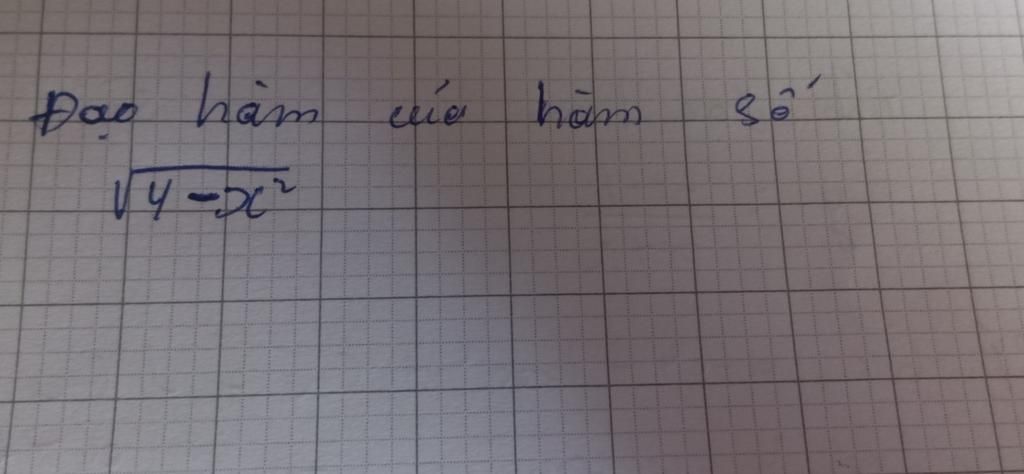 Đạo hàm của hàm số
√4-x²